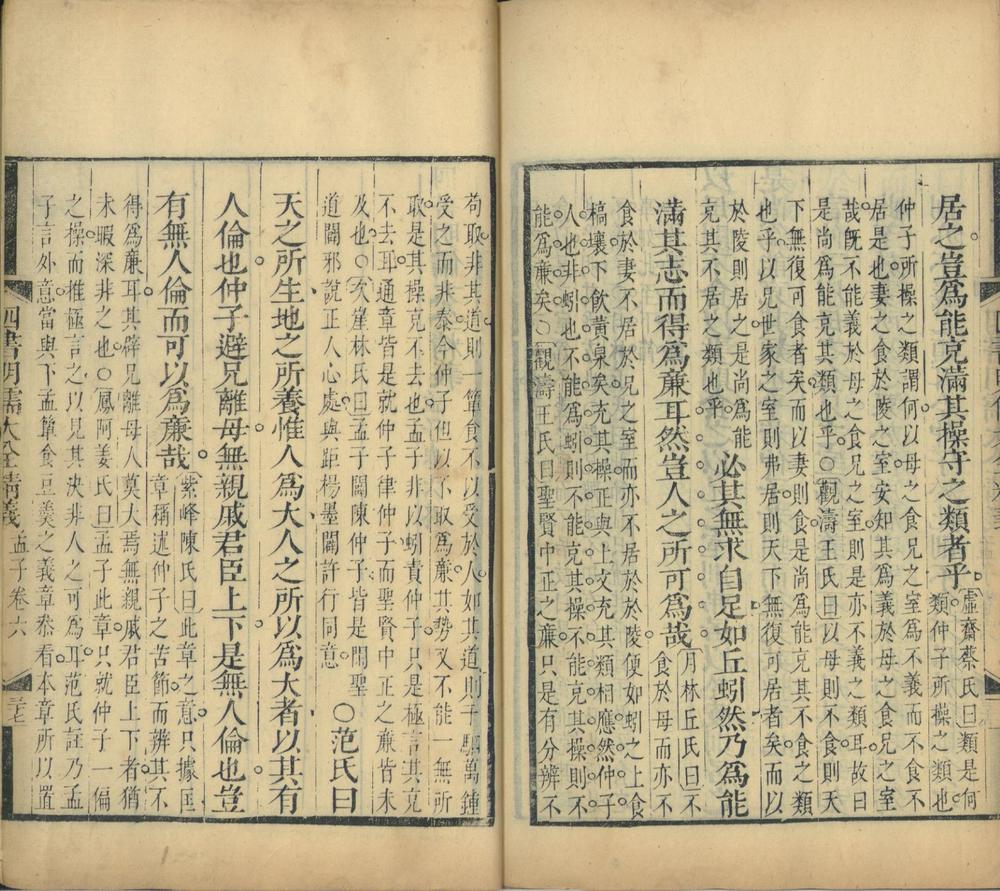 居之豈爲能充滿其操守之類者乎
虛齋蔡氏曰類是何
類仲子所操之類也
仲子所操之類謂何以母之食兄之室爲不義而不食不
居是也妻之食於陵之室安知其爲義於母之食兄之室
哉既不能義於母之食兄之室則是亦不義之類耳故曰
是尚爲能充其類也乎○觀濤王氏曰以母則不食則天
下無復可食者矣而以妻則食是尚爲能充其不食之類
也乎以兄世家之室則弗居則天下無復可居者矣而以
於陵則居之是尚爲能
充其不居之類也乎
必其無求自足如丘蚓然乃爲能
滿其志而得爲廉耳然豈人之所可爲哉
月林丘氏曰不
食於母而亦不
食於妻不居於兄之室而亦不居於於陵便如蚓之上食
槁壤下飲黃泉矣充其操正與上文充其類相應然仲子
人也非蚓也不能爲蚓則不能充其操不能充其操則不
能爲廉矣○觀濤王氏曰聖賢中正之廉只是有分辨不
苟取非其道則一簞食不以受於人如其道則千駟萬鍾
受之而非泰今仲子但以不取爲廉其勢又不能一無所
取是其操克不去也孟子非以蚓責仲子只是極言其克
不去耳通章皆是就仲子律仲子而聖賢中正之廉皆未
及也○次崖林氏曰孟子闢陳仲子皆是閑聖
道闢邪説正人心處與距楊墨闢許行同意
○范氏曰
天之所生地之所養惟人爲大人之所以爲大者以其有
人倫也仲子避兄離母無親戚君臣上下是無人倫也豈
有無人倫而可以爲廉哉
紫峰陳氏曰此章之意只據匡
章稱述仲子之苦節而辨其不
得爲廉耳其辟兄離母人莫大焉無親戚君臣上下者猶
未暇深非之也○鳳阿姜氏曰孟子此章只就仲子一偏
之操而推極言之以見其決非人之可爲耳范氏註乃孟
子言外意當與下孟簞食豆羹之義章叅看本章所以置
四書明儒大全精義
孟子卷六